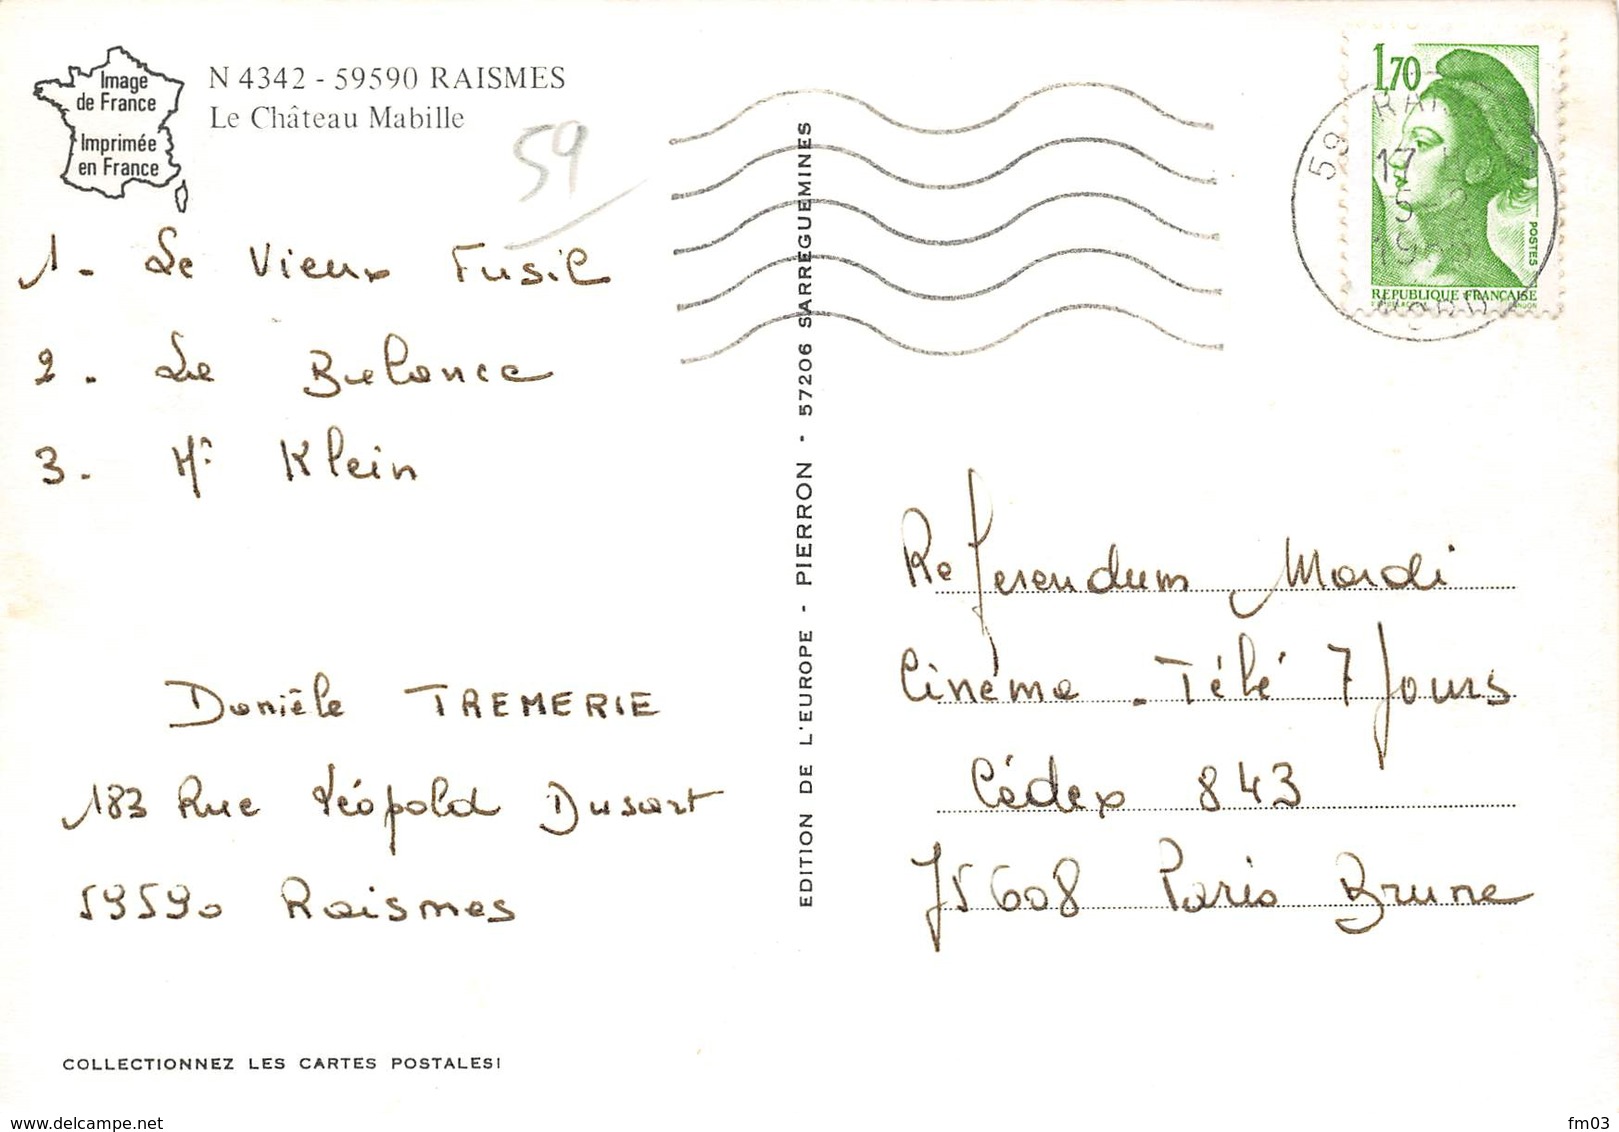 Image
de France
Imprimée
en France
N 4342 - 59590 RAISMES
Le Château Mabille
59
1 - Le Vieux Fusil
2 - La Balance
3 - Mr Klein
Danièle TREMERIE
183 Rue Léopold Dusart
59590 Raismes
COLLECTIONNEZ LES CARTES POSTALES!
EDITION DE L'EUROPE - PIERRON - 57206 SARREGUEMINES
1,70
POSTES
REPUBLIQUE FRANÇAISE
59
17
5-
19
Referendum Mardi
Cinéma - Télé 7 Jours
Cédex 843
75608 Paris Brune
www.delcampe.net
fm03